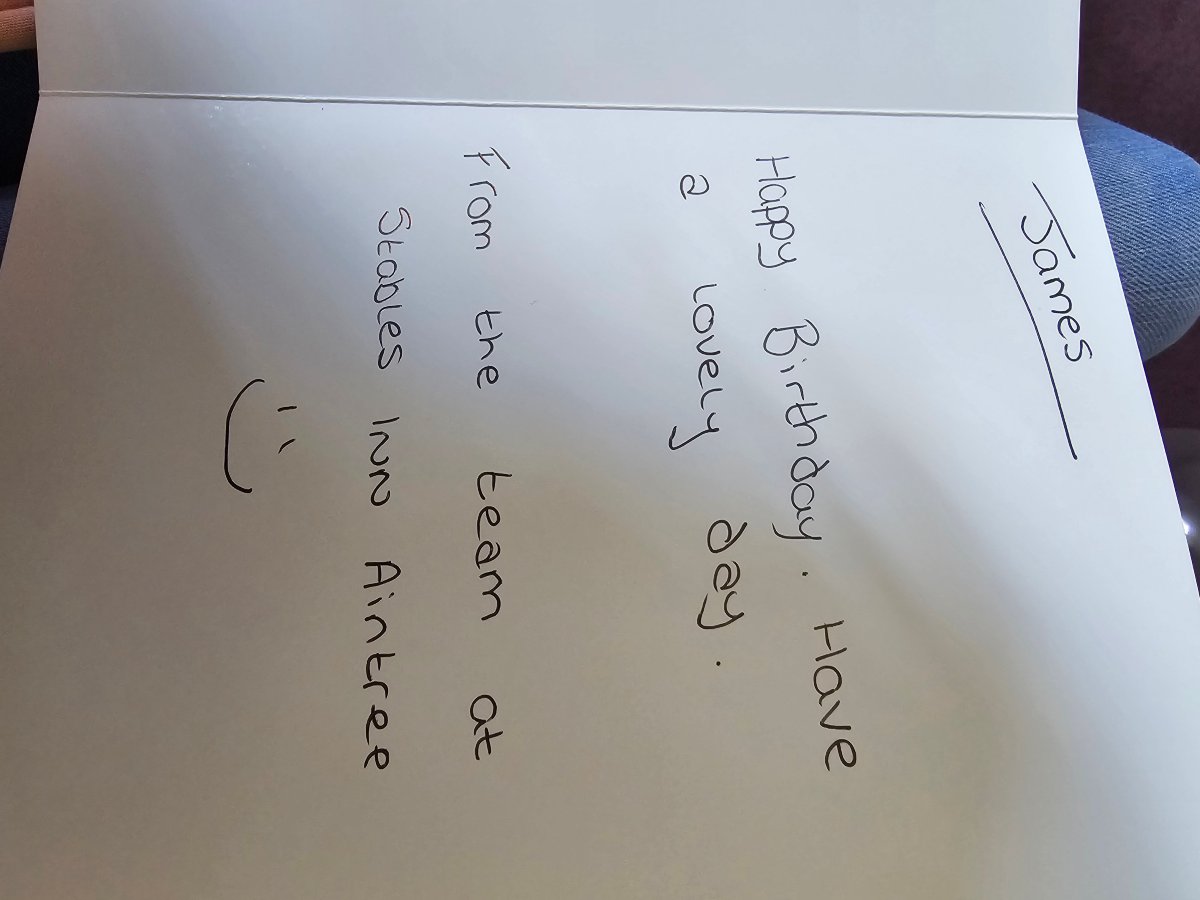 James
Happy Birthday. Have
a lovely day.
From the team at
Stables Inn Aintree
:)